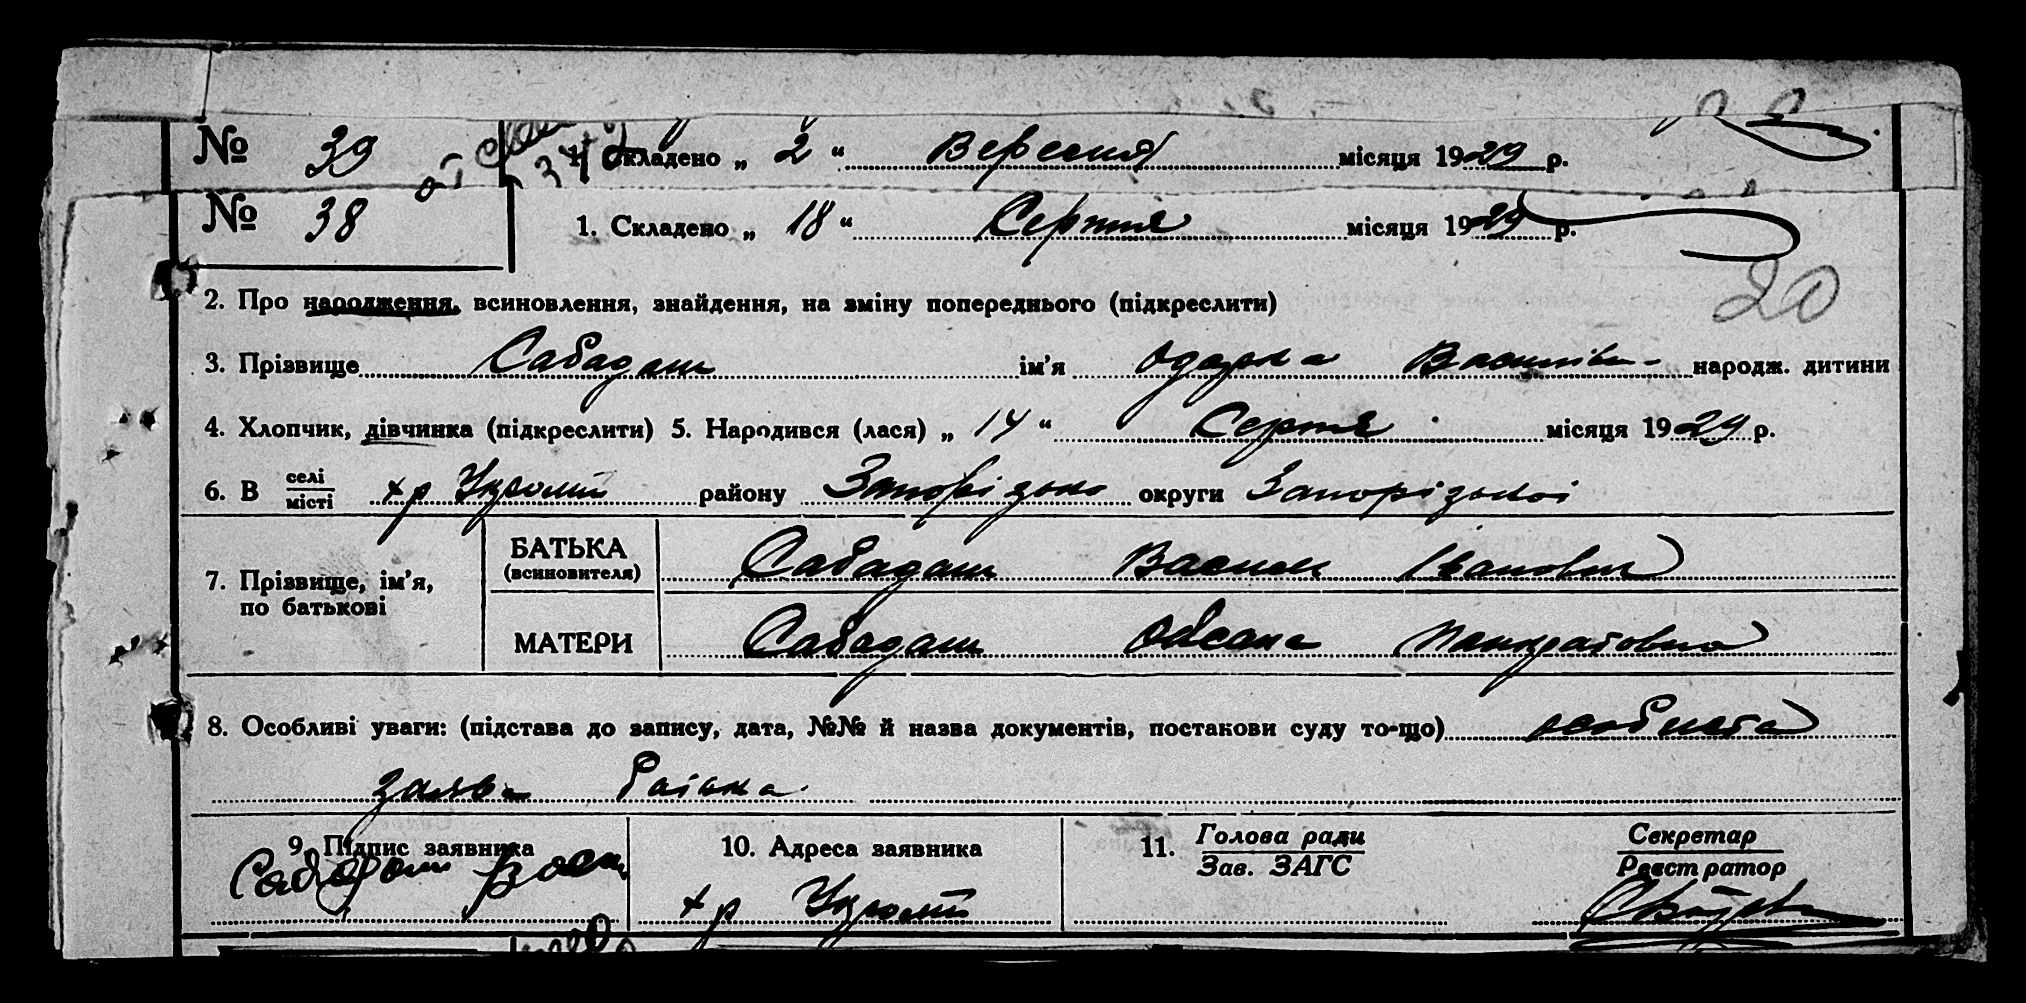 № 39 1. Складено „ 2 “ Вересня місяця 1929 р.
№ 38 1. Складено „ 18 “ Серпня місяця 1929 р.
20
2. Про народження, всиновлення, знайдення, на зміну попереднього (підкреслити)
3. Прізвище Сабадаш ім'я Одарка Василів- народж. дитини
4. Хлопчик, дівчинка (підкреслити) 5. Народився (лася) „ 14 “ Серпня місяця 1929 р.
6. В селі місті хр району Запорізько округи Запорізькоі
7. Прізвище, ім'я, по батькові
БАТЬКА (всиновителя) Сабадаш Василь Іванович
МАТЕРИ Сабадаш Оксана Панкратовна
8. Особливі уваги: (підстава до запису, дата, №№ й назва документів, постакови суду то-що) особиста
заява батька
9. Підпис заявника 10. Адреса заявника 11. Голова ради Зав. ЗАГС Секретар Реєстратор
Сабадаш Васи хр